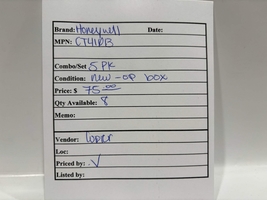 Brand: Honeywell Date:
MPN: CT41DB
Combo/Set 5 PK
Condition: new - op box
Price: $ 75.00
Qty Available: 8
Memo:
Vendor:
Loc:
Priced by: V
Listed by: